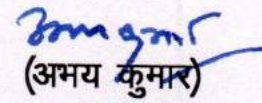 (अभय कुमार)